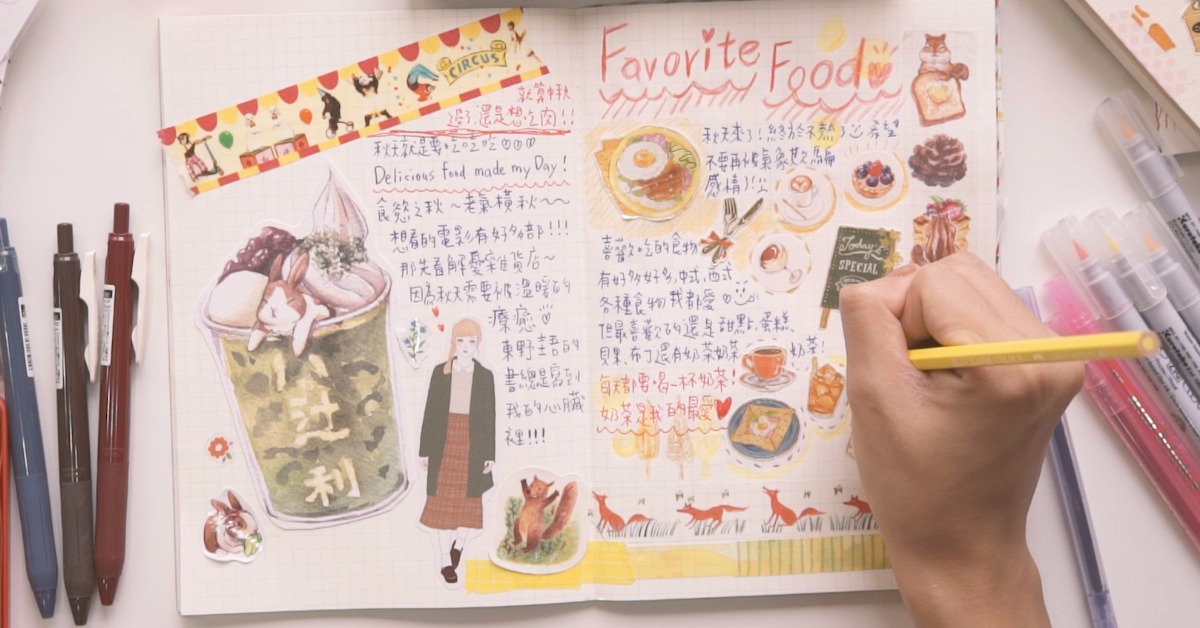 CIRCUS
就算中秋
過了還是想吃肉!!
秋天就是要吃吃吃♡♡♡
Delicious food made my Day!
食慾之秋~老氣橫秋~~
想看的電影有好多部!!!
那先看解憂雜貨店~
因為秋天需要被溫暖的
療癒♡
東野圭吾的
書總是寫到
我的心臟
裡!!!
小辻利
Favorite Food
秋天來了!終於不熱了 希望
不要再被氣象欺騙
感情了!!
喜歡吃的食物
有好多好多,中式,西式
各種食物我都愛♡
但最喜歡的還是甜點,蛋糕,
貝果,布丁還有奶茶奶茶 奶茶!
每天都要喝一杯奶茶!
奶茶是我的最愛
Today's
SPECIAL